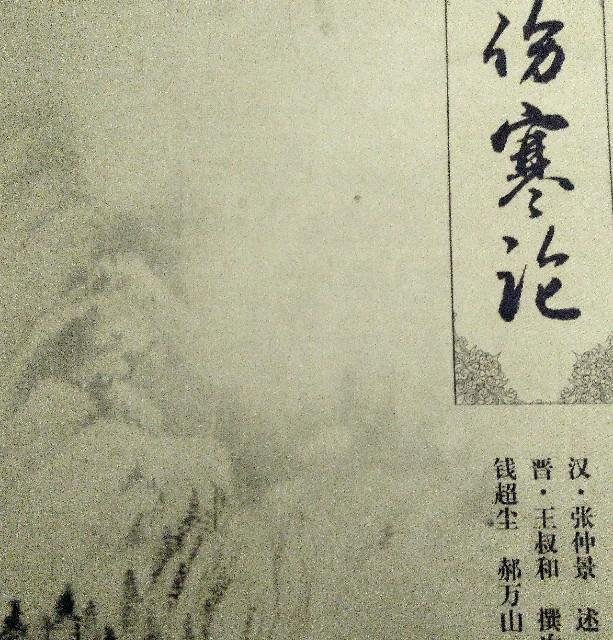 伤寒论
汉·张仲景 述
晋·王叔和 撰
钱超尘 郝万山